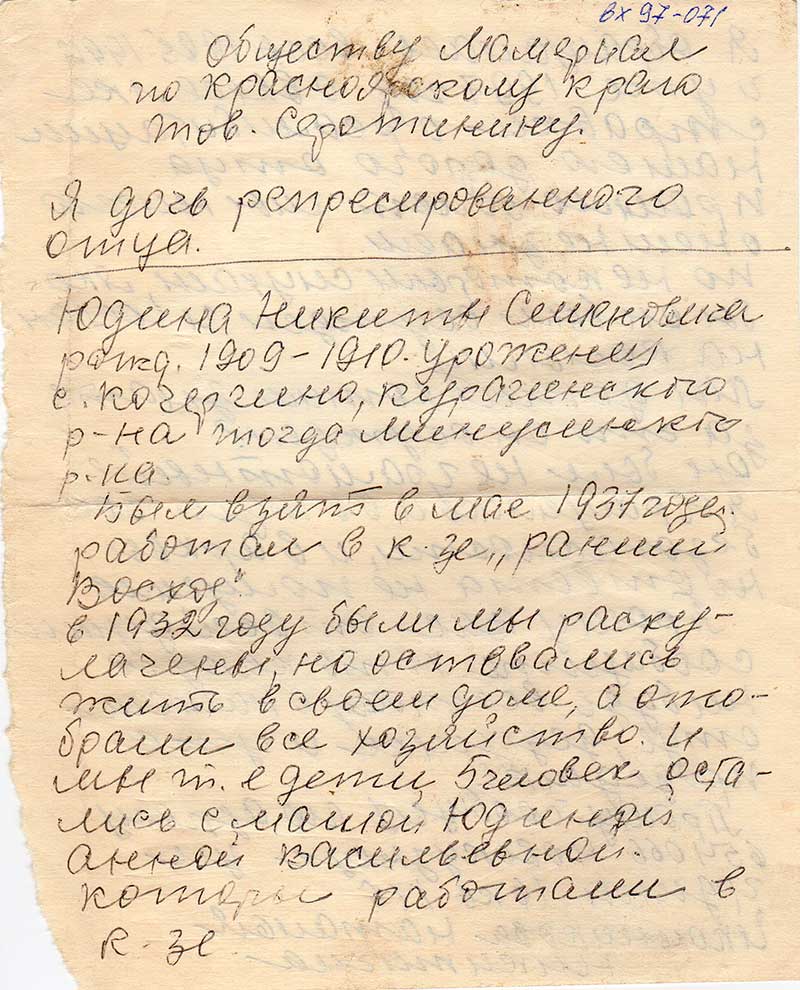 вх 97-071
Обществу Мамериал
по Красноярскому краю
тов. Серотинину.
Я дочь репресированного
отца.
Юдина Никиты Семеновича
рожд. 1909-1910. Уроженец
с. Кочергино, Курагинского
р-на тогда Минусинкго
р-на.
Был взят в мае 1937 года.
работал в к-зе „Ранний
Восход".
в 1932 году были мы раску-
лачены, но оставались
жить в своем доме, а ото-
брали все хозяйство. И
мы т. е дети, 5 человек оста-
лись с мамой Юдиной
Анной Васильевной.
которы работали в
к-зе